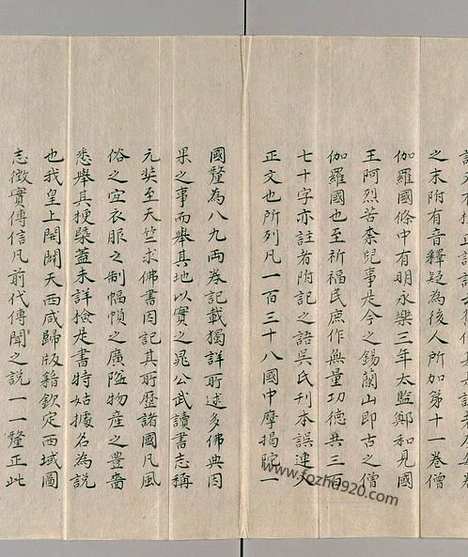 之末附有音釋疑為後人所加第十一卷僧
伽羅國條中有明永樂三年太監鄭和見國
王阿烈苦柰兒事是今之錫蘭山即古之僧
伽羅國也至祈福民庶作無量功德共三百
七十字亦註者附記之語吳氏刊本誤連入
正文也所列凡一百三十八國中摩揭陁一
國釐為八九兩卷記載獨詳所述多佛典因
果之事而舉其地以實之晁公武讀書志稱
元奘至天竺求佛書因記其所歷諸國凡風
俗之宜衣服之制幅㡧之廣隘物産之豐嗇
悉舉其梗槩蓋未詳撿是書特姑據名為說
也我皇上開闢天西咸歸版籍欽定西域圖
志徵實傳信凡前代傳聞之說一一釐正此
www.fozhu920.com